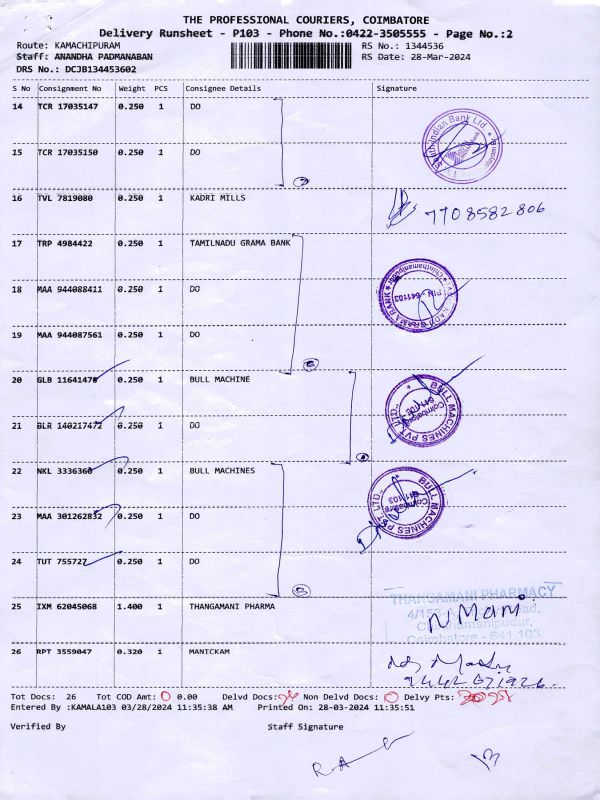 THE PROFESSIONAL COURIERS, COIMBATORE
Delivery Runsheet - P103 - Phone No.:0422-3505555 - Page No.:2
Route: KAMACHIPURAM RS No.: 1344536
Staff: ANANDHA PADMANABAN RS Date: 28-Mar-2024
DRS No.: DCJB134453602
S No Consignment No Weight PCS Consignee Details Signature
14 TCR 17035147 0.250 1 DO
15 TCR 17035150 0.250 1 DO
16 TVL 7819080 0.250 1 KADRI MILLS 7708582806
17 TRP 4984422 0.250 1 TAMILNADU GRAMA BANK
18 MAA 944088411 0.250 1 DO
PIN - 641103
19 MAA 944087561 0.250 1 DO
20 GLB 11641470 0.250 1 BULL MACHINE
BULL MACHINES PVT LTD.,
21 BLR 140217472 0.250 1 DO
22 NKL 3336360 0.250 1 BULL MACHINES
BULL MACHINES PVT LTD.,
Coimbatore
23 MAA 301262832 0.250 1 DO
24 TUT 755727 0.250 1 DO
THANGAMANI PHARMACY
25 IXM 62045068 1.400 1 THANGAMANI PHARMA
N. Mani
Coimbatore - 641 103
26 RPT 3559047 0.320 1 MANICKAM
Tot Docs: 26 Tot COD Amt: 0 0.00 Delvd Docs: Non Delvd Docs: 0 Delvy Pts:
Entered By :KAMALA103 03/28/2024 11:35:38 AM Printed On: 28-03-2024 11:35:51
Verified By Staff Signature